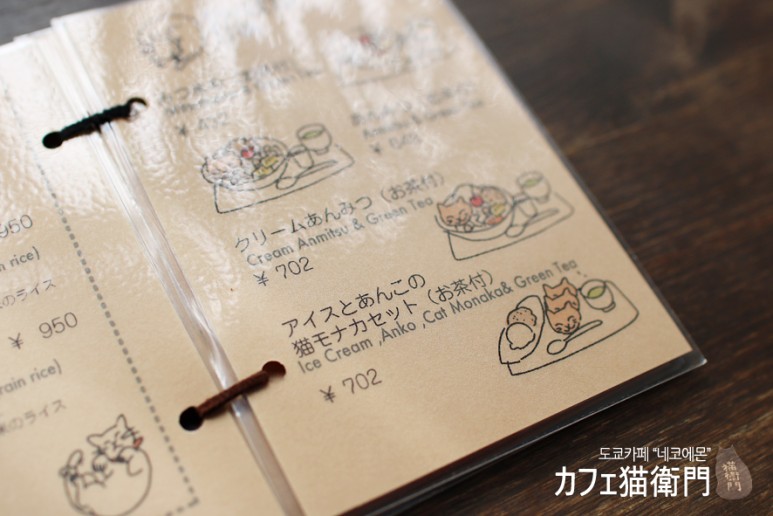 950
rain rice)
のライス
¥ 950
rain rice)
米のライス
クリームあんみつ（お茶付）
Cream Anmitsu & Green Tea
¥ 702
アイスとあんこの
猫モナカセット（お茶付）
Ice Cream ,Anko ,Cat Monaka& Green Tea
¥ 702
도쿄카페 “네코에몬”
カフェ猫衛門
猫衛門